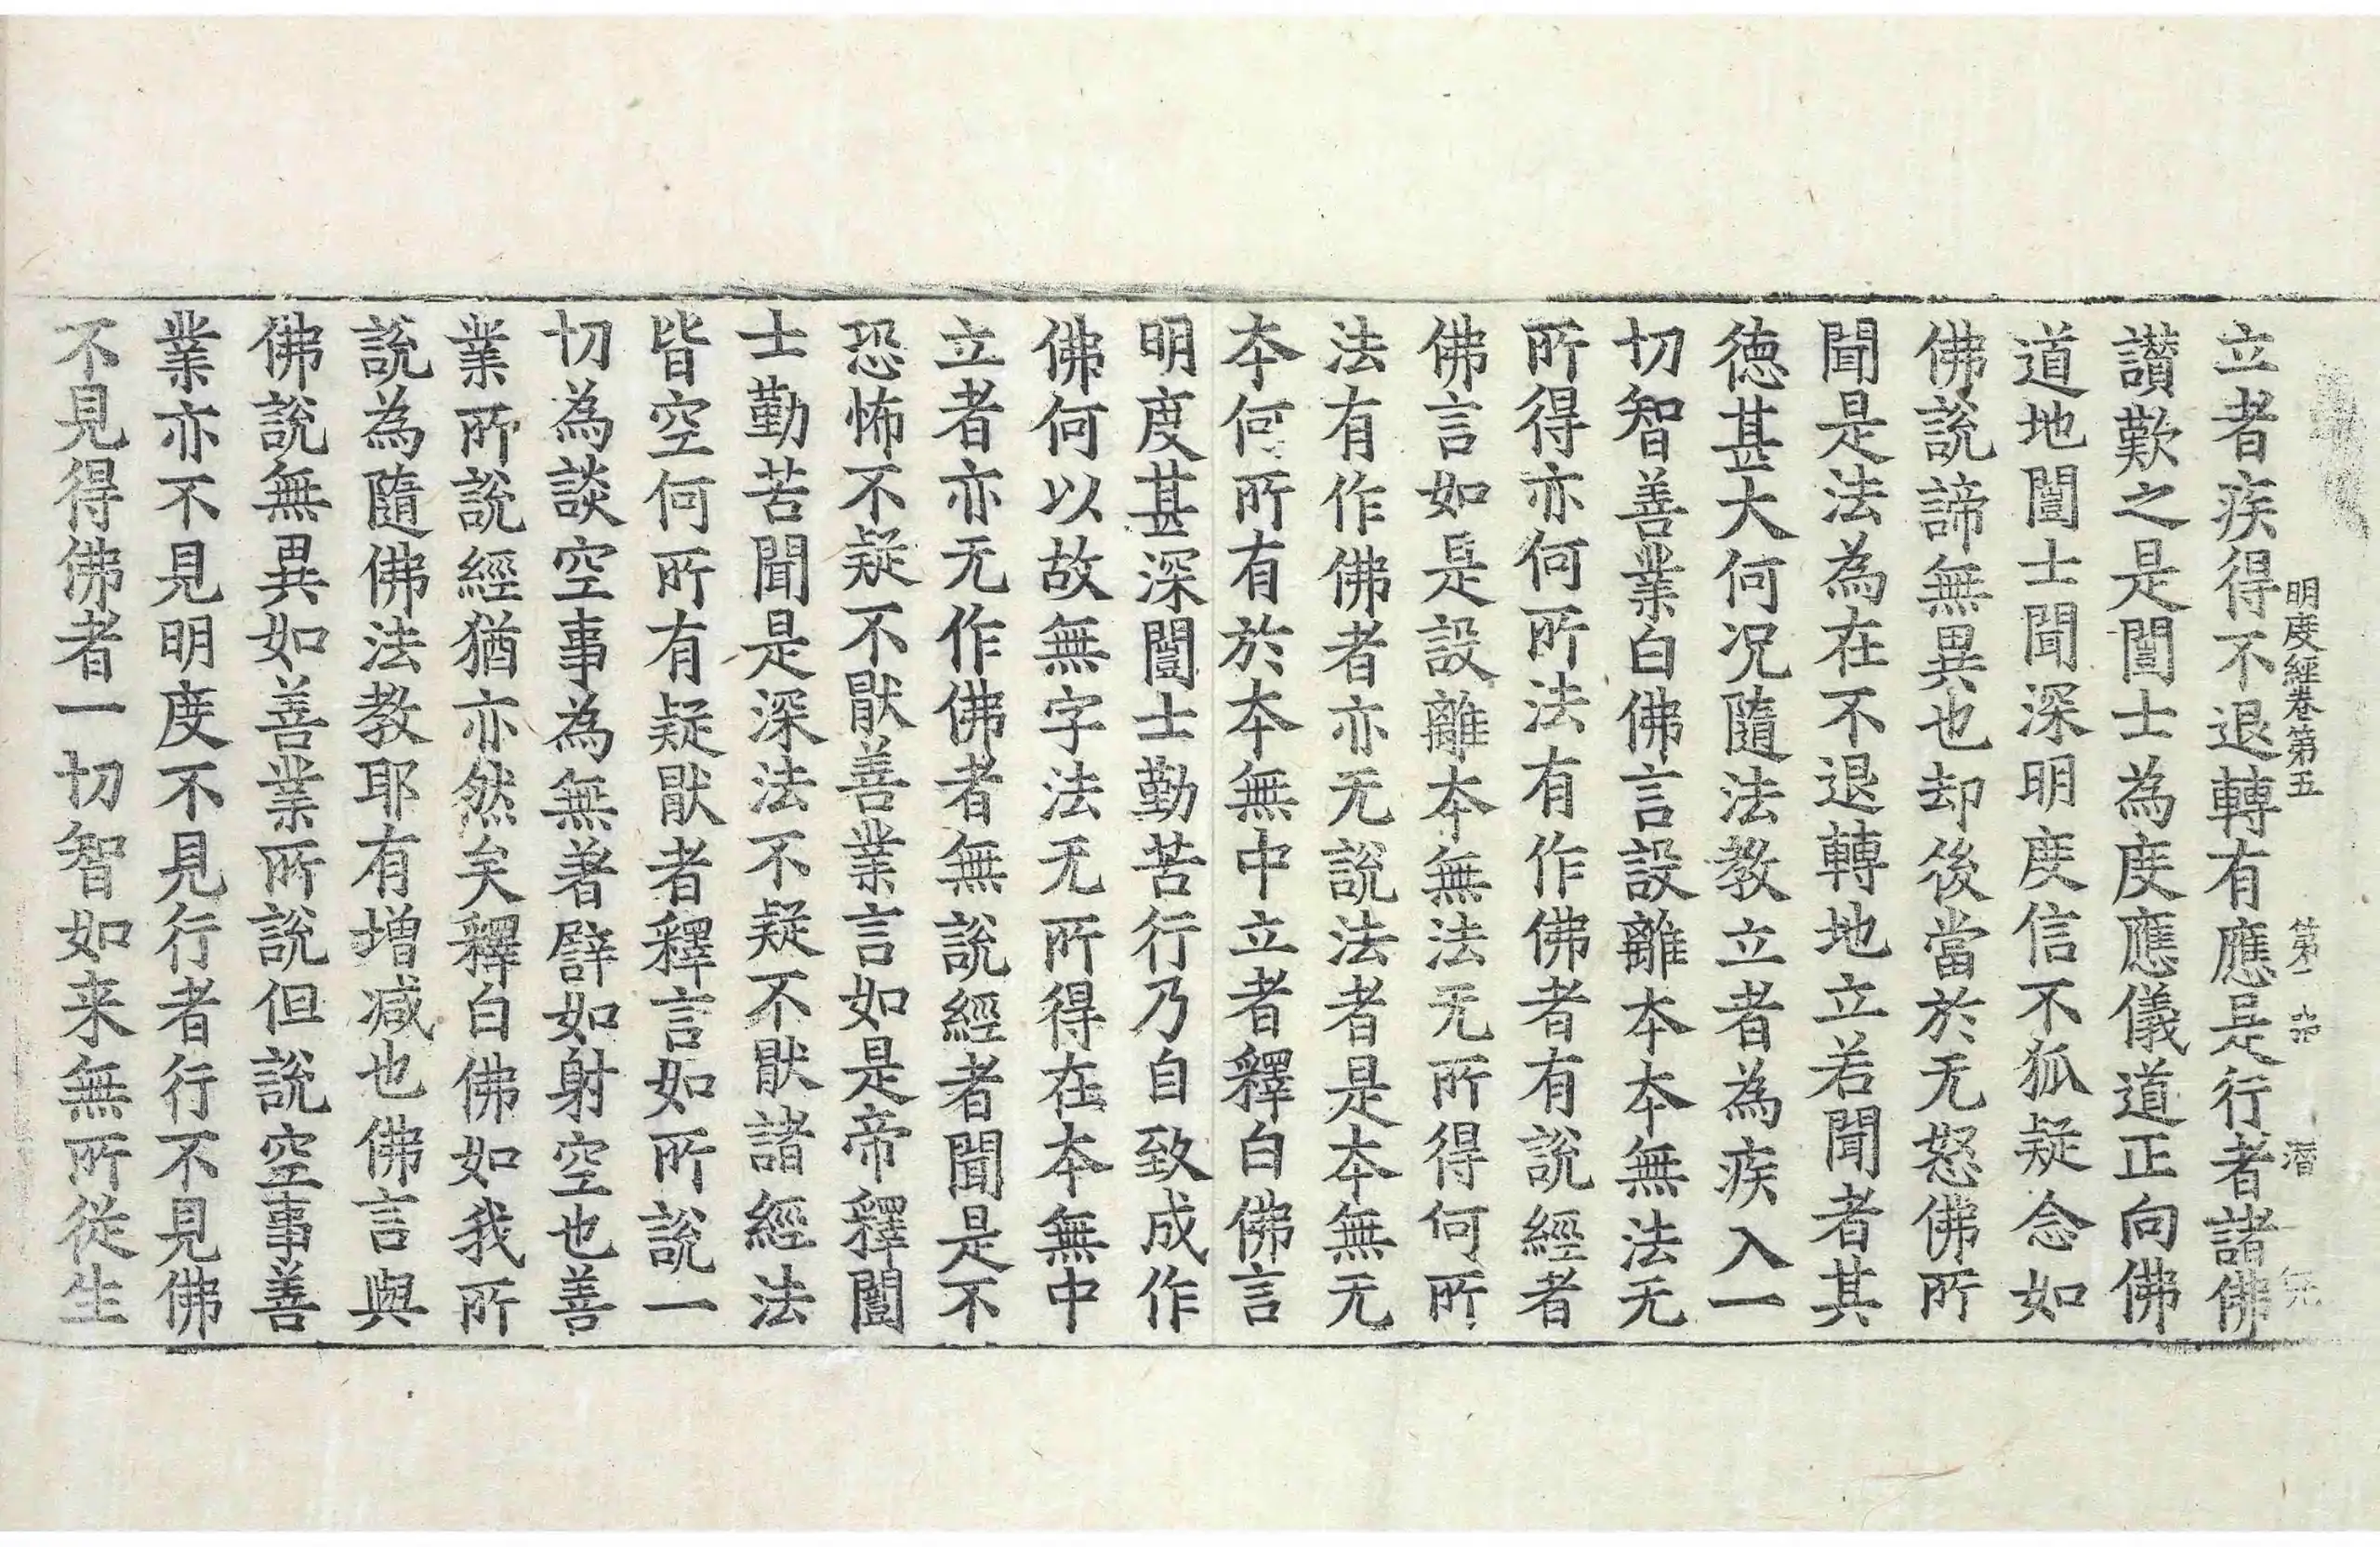 明度經卷第五 第二 潛 无
立者疾得不退轉有應是行者諸佛
讃歎之是闓士為度應儀道正向佛
道地闓士聞深明度信不狐疑念如
佛說諦無異也却後當於无怒佛所
聞是法為在不退轉地立若聞者其
德甚大何况隨法教立者為疾入一
切智善業白佛言設離本本無法无
所得亦何所法有作佛者有說經者
佛言如是設離本無法无所得何所
法有作佛者亦无說法者是本無无
本何所有於本無中立者釋白佛言
明度甚深闓士勤苦行乃自致成作
佛何以故無字法无所得在本無中
立者亦无作佛者無說經者聞是不
恐怖不疑不猒善業言如是帝釋闓
士勤苦聞是深法不疑不猒諸經法
皆空何所有疑猒者釋言如所說一
切為談空事為無著譬如射空也善
業所說經猶亦然矣釋白佛如我所
說為隨佛法教耶有增减也佛言與
佛說無異如善業所說但說空事善
業亦不見明度不見行者行不見佛
不見得佛者一切智如来無所従生